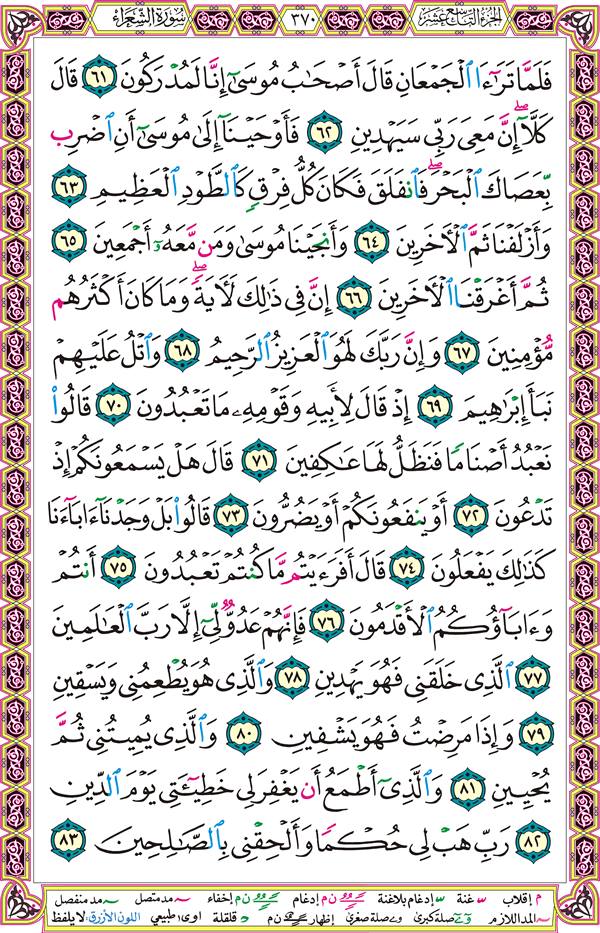 الجزء التاسع عشر
٣٧٠
سورة الشعراء
فَلَمَّا تَرَٰٓءَا ٱلْجَمْعَانِ قَالَ أَصْحَٰبُ مُوسَىٰٓ إِنَّا لَمُدْرَكُونَ ٦١ قَالَ
كَلَّآ ۖ إِنَّ مَعِىَ رَبِّى سَيَهْدِينِ ٦٢ فَأَوْحَيْنَآ إِلَىٰ مُوسَىٰٓ أَنِ ٱضْرِب
بِّعَصَاكَ ٱلْبَحْرَ ۖ فَٱنفَلَقَ فَكَانَ كُلُّ فِرْقٍ كَٱلطَّوْدِ ٱلْعَظِيمِ ٦٣
وَأَزْلَفْنَا ثَمَّ ٱلْأَخَرِينَ ٦٤ وَأَنجَيْنَا مُوسَىٰ وَمَن مَّعَهُۥٓ أَجْمَعِينَ ٦٥
ثُمَّ أَغْرَقْنَا ٱلْأَخَرِينَ ٦٦ إِنَّ فِى ذَٰلِكَ لَأَيَةً ۖ وَمَا كَانَ أَكْثَرُهُم
مُّؤْمِنِينَ ٦٧ وَإِنَّ رَبَّكَ لَهُوَ ٱلْعَزِيزُ ٱلرَّحِيمُ ٦٨ وَٱتْلُ عَلَيْهِمْ
نَبَأَ إِبْرَٰهِيمَ ٦٩ إِذْ قَالَ لِأَبِيهِ وَقَوْمِهِۦ مَا تَعْبُدُونَ ٧٠ قَالُوا۟
نَعْبُدُ أَصْنَامًا فَنَظَلُّ لَهَا عَٰكِفِينَ ٧١ قَالَ هَلْ يَسْمَعُونَكُمْ إِذْ
تَدْعُونَ ٧٢ أَوْ يَنفَعُونَكُمْ أَوْ يَضُرُّونَ ٧٣ قَالُوا۟ بَلْ وَجَدْنَآ ءَابَآءَنَا
كَذَٰلِكَ يَفْعَلُونَ ٧٤ قَالَ أَفَرَءَيْتُم مَّا كُنتُمْ تَعْبُدُونَ ٧٥ أَنتُمْ
وَءَابَآؤُكُمُ ٱلْأَقْدَمُونَ ٧٦ فَإِنَّهُمْ عَدُوٌّ لِّىٓ إِلَّا رَبَّ ٱلْعَٰلَمِينَ
٧٧ ٱلَّذِى خَلَقَنِى فَهُوَ يَهْدِينِ ٧٨ وَٱلَّذِى هُوَ يُطْعِمُنِى وَيَسْقِينِ
٧٩ وَإِذَا مَرِضْتُ فَهُوَ يَشْفِينِ ٨٠ وَٱلَّذِى يُمِيتُنِى ثُمَّ
يُحْيِينِ ٨١ وَٱلَّذِىٓ أَطْمَعُ أَن يَغْفِرَ لِى خَطِيٓـَٔتِى يَوْمَ ٱلدِّينِ
٨٢ رَبِّ هَبْ لِى حُكْمًا وَأَلْحِقْنِى بِٱلصَّٰلِحِينَ ٨٣
م إقلاب غنة إدغام بلاغنة ن م إدغام ن م إخفاء مد متصل مد منفصل
المد اللازم صلة كبرى صلة صغرى إظهار ن م قلقلة اوى طبيعي اللون الأزرق: لا يلفظ